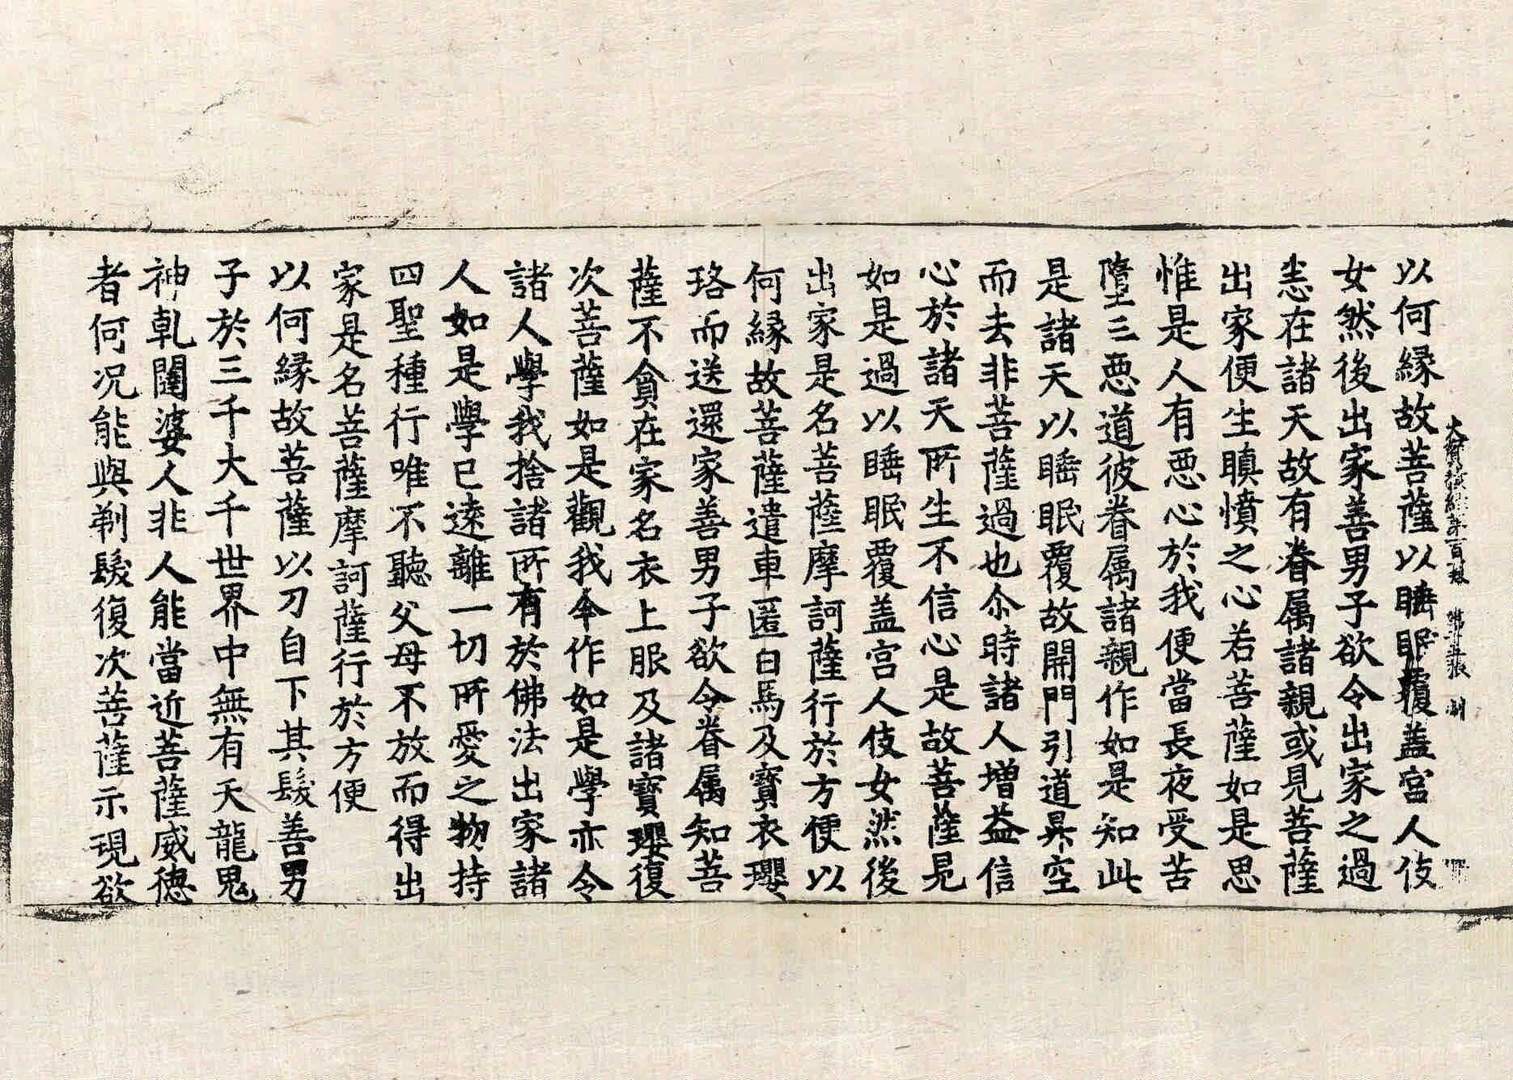 以何緣故菩薩以睡眠覆盖宮人伎
女然後出家善男子欲令出家之過
恙在諸天故有眷属諸親或見菩薩
出家便生瞋憤之心若菩薩如是思
惟是人有悪心於我便當長夜受苦
墮三悪道彼眷属諸親作如是知此
是諸天以睡眠覆故開門引道昇空
而去非菩薩過也尒時諸人增益信
心於諸天所生不信心是故菩薩見
如是過以睡眠覆盖宮人伎女然後
出家是名菩薩摩訶薩行於方便以
何緣故菩薩遣車匿白馬及寶衣瓔
珞而送還家善男子欲令眷属知菩
薩不貪在家名衣上服及諸寶瓔復
次菩薩如是觀我今作如是學亦令
諸人學我捨諸所有於佛法出家諸
人如是學已遠離一切所愛之物持
四聖種行唯不聽父母不放而得出
家是名菩薩摩訶薩行於方便
以何緣故菩薩以刀自下其髮善男
子於三千大千世界中無有天龍鬼
神乹闥婆人非人能當近菩薩威德
者何況能與剃髮復次菩薩示現欲